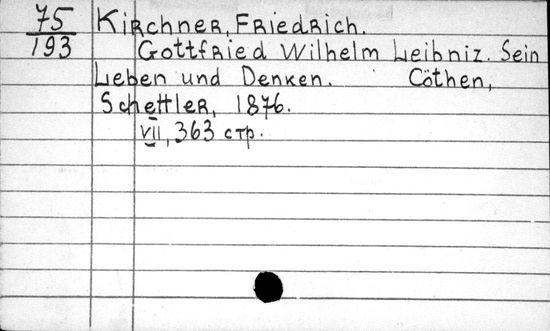 75
193
Kirchner, Friedrich.
Gottfried Wilhelm Leibniz. Sein
Leben und Denken. Cöthen,
Schettler, 1876.
VII, 363 стр.